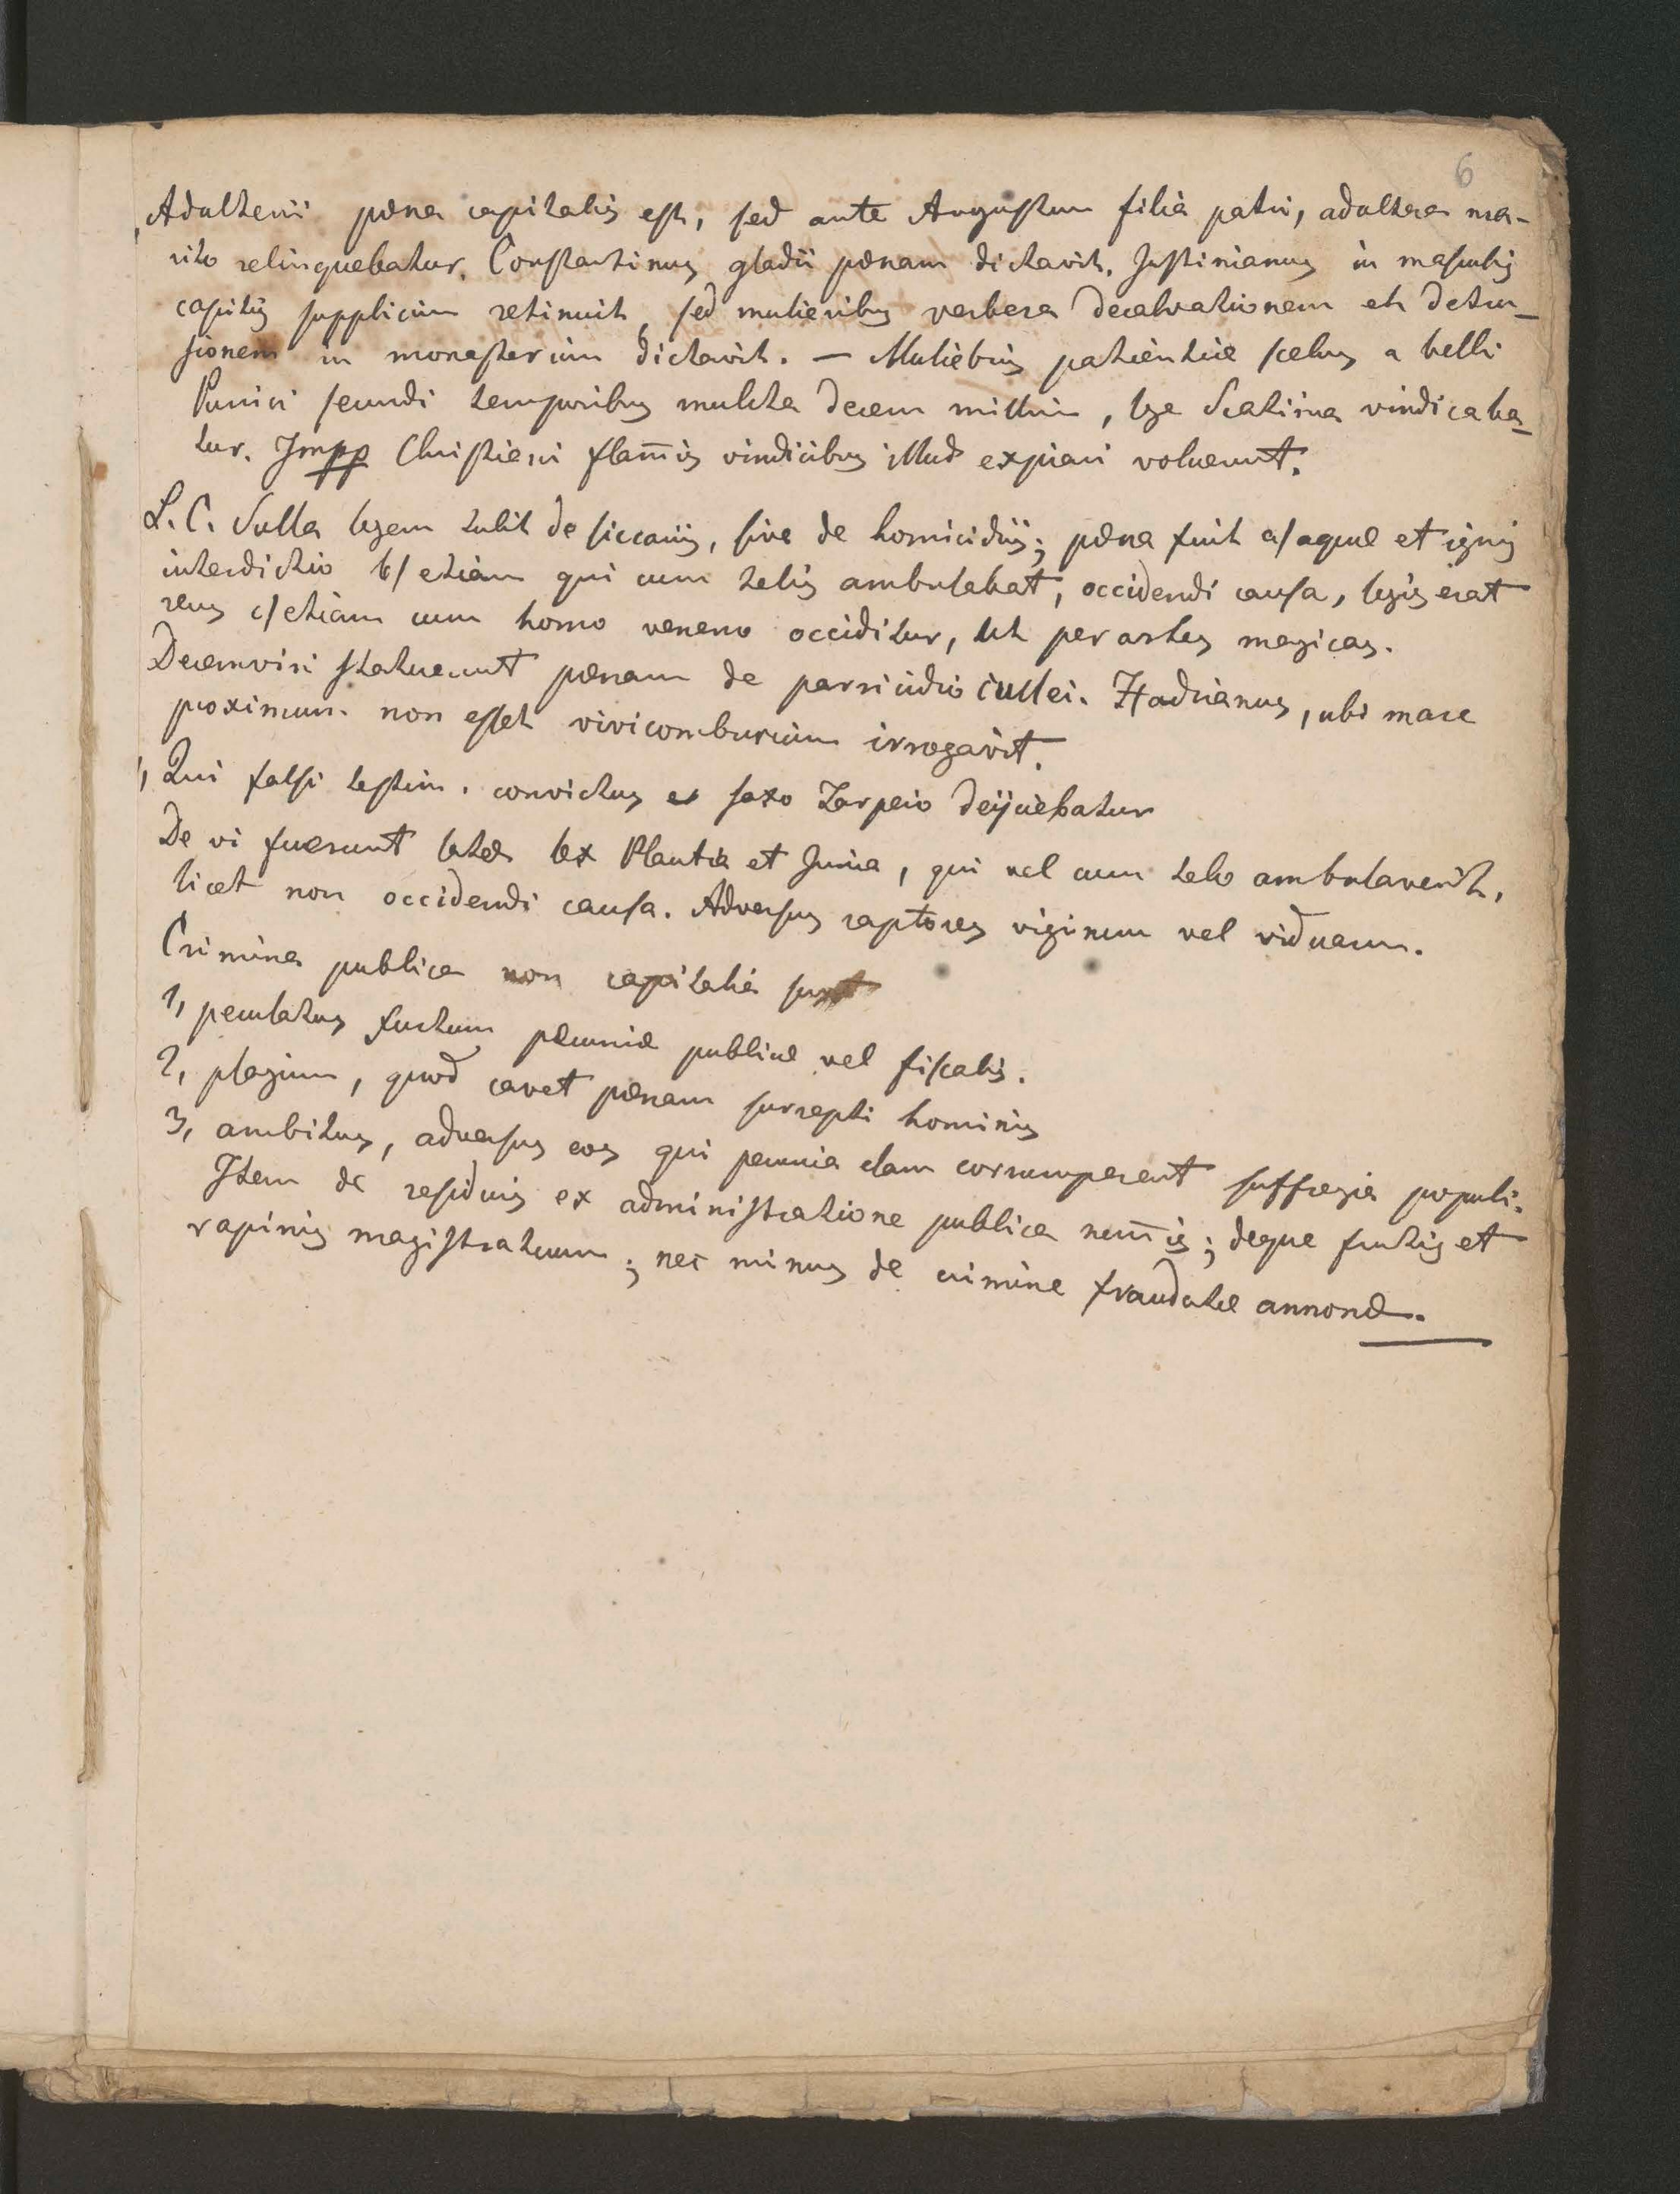 6
, Adulterii pœna capitalis est, sed ante Augustum filia patri, adultera ma-
rito relinquebatur. Constantinus gladii pœnam dictavit. Justinianus in masculis
capitis supplicium retinuit, sed mulieribus verbera decalvationem et detru-
sionem in monasterium dictavit. – Muliebris patientiæ scelus a belli
Punici secundi temporibus mulcta decem millium, lege Scatinia vindicaba-
tur. Impp Christiani flam̄is vindicibus illud expiari voluerunt.
L. C. Sulla legem tulit de siccariis, sive de homicidiis; pœna fuit a/ aquæ et ignis
interdictio b/ etiam qui cum telis ambulabat, occidendi causa, legis erat
reus c/ etiam cum homo veneno occiditur, ut per artes magicas.
Decemviri statuerunt pœnam de parricidio cullei. Hadrianus, ubi mare
proximum non esset vivicomburium irrogavit.
1, Qui falsi testim. convictus ex saxo Tarpeio dejiciebatur
De vi fuerunt latæ lex Plautia et Junia, qui vel cum telo ambulaverit,
licet non occidendi causa. Adversus raptores virginum vel viduarum.
Crimina publica non capitalia sunt
1, peculatus furtum pecuniæ publicæ vel fiscalis.
2, plagium, quod cavet pœnam surrepti hominis
3, ambitus, adversus eos qui pecunia clam corrumperent suffragia populi.
Item de residuis ex administratione publica num̄is; deque furtis et
rapinis magistratuum; nec minus de crimine fraudatæ annonæ.